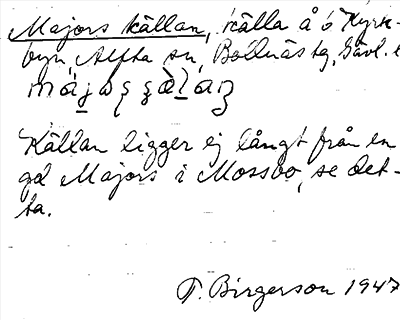 Majors källan, källa å ö Kyrk-
byn, Alfta sn, Bollnäs tg, Gävl. l
Källan ligger ej långt från en
gd Majors i Mossbo, se det-
ta.
T. Birgerson 1947